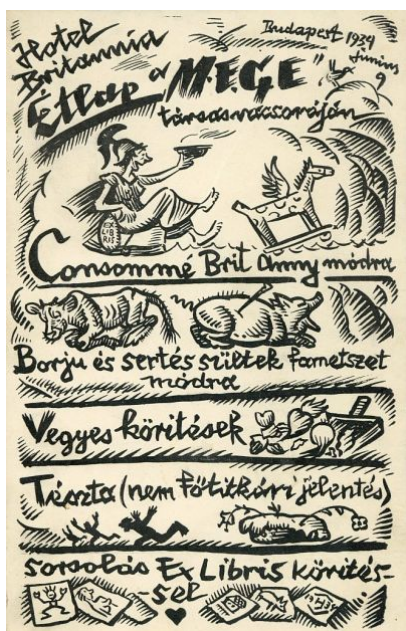 Hotel
Britannia
Budapest 1934
Junius
9
Étlap a "M.E.G.E"
társasvacsoráján
EX
LIB
RIS
Consommé Brit Anny módra
Borju és sertés sültek fametszet
módra
Vegyes köritések
Tészta (nem főtitkári jelentés)
Sorsolás Ex Libris körités-
-sel
1934